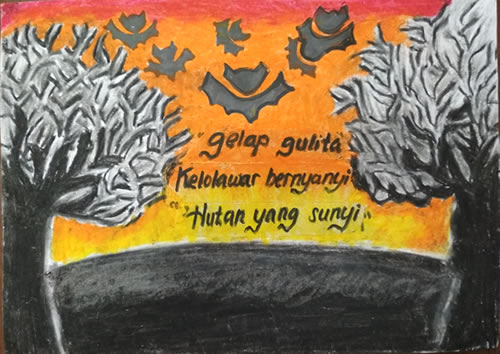 "gelap gulita
Kelolawar bernyanyi
"Hutan yang sunyi"